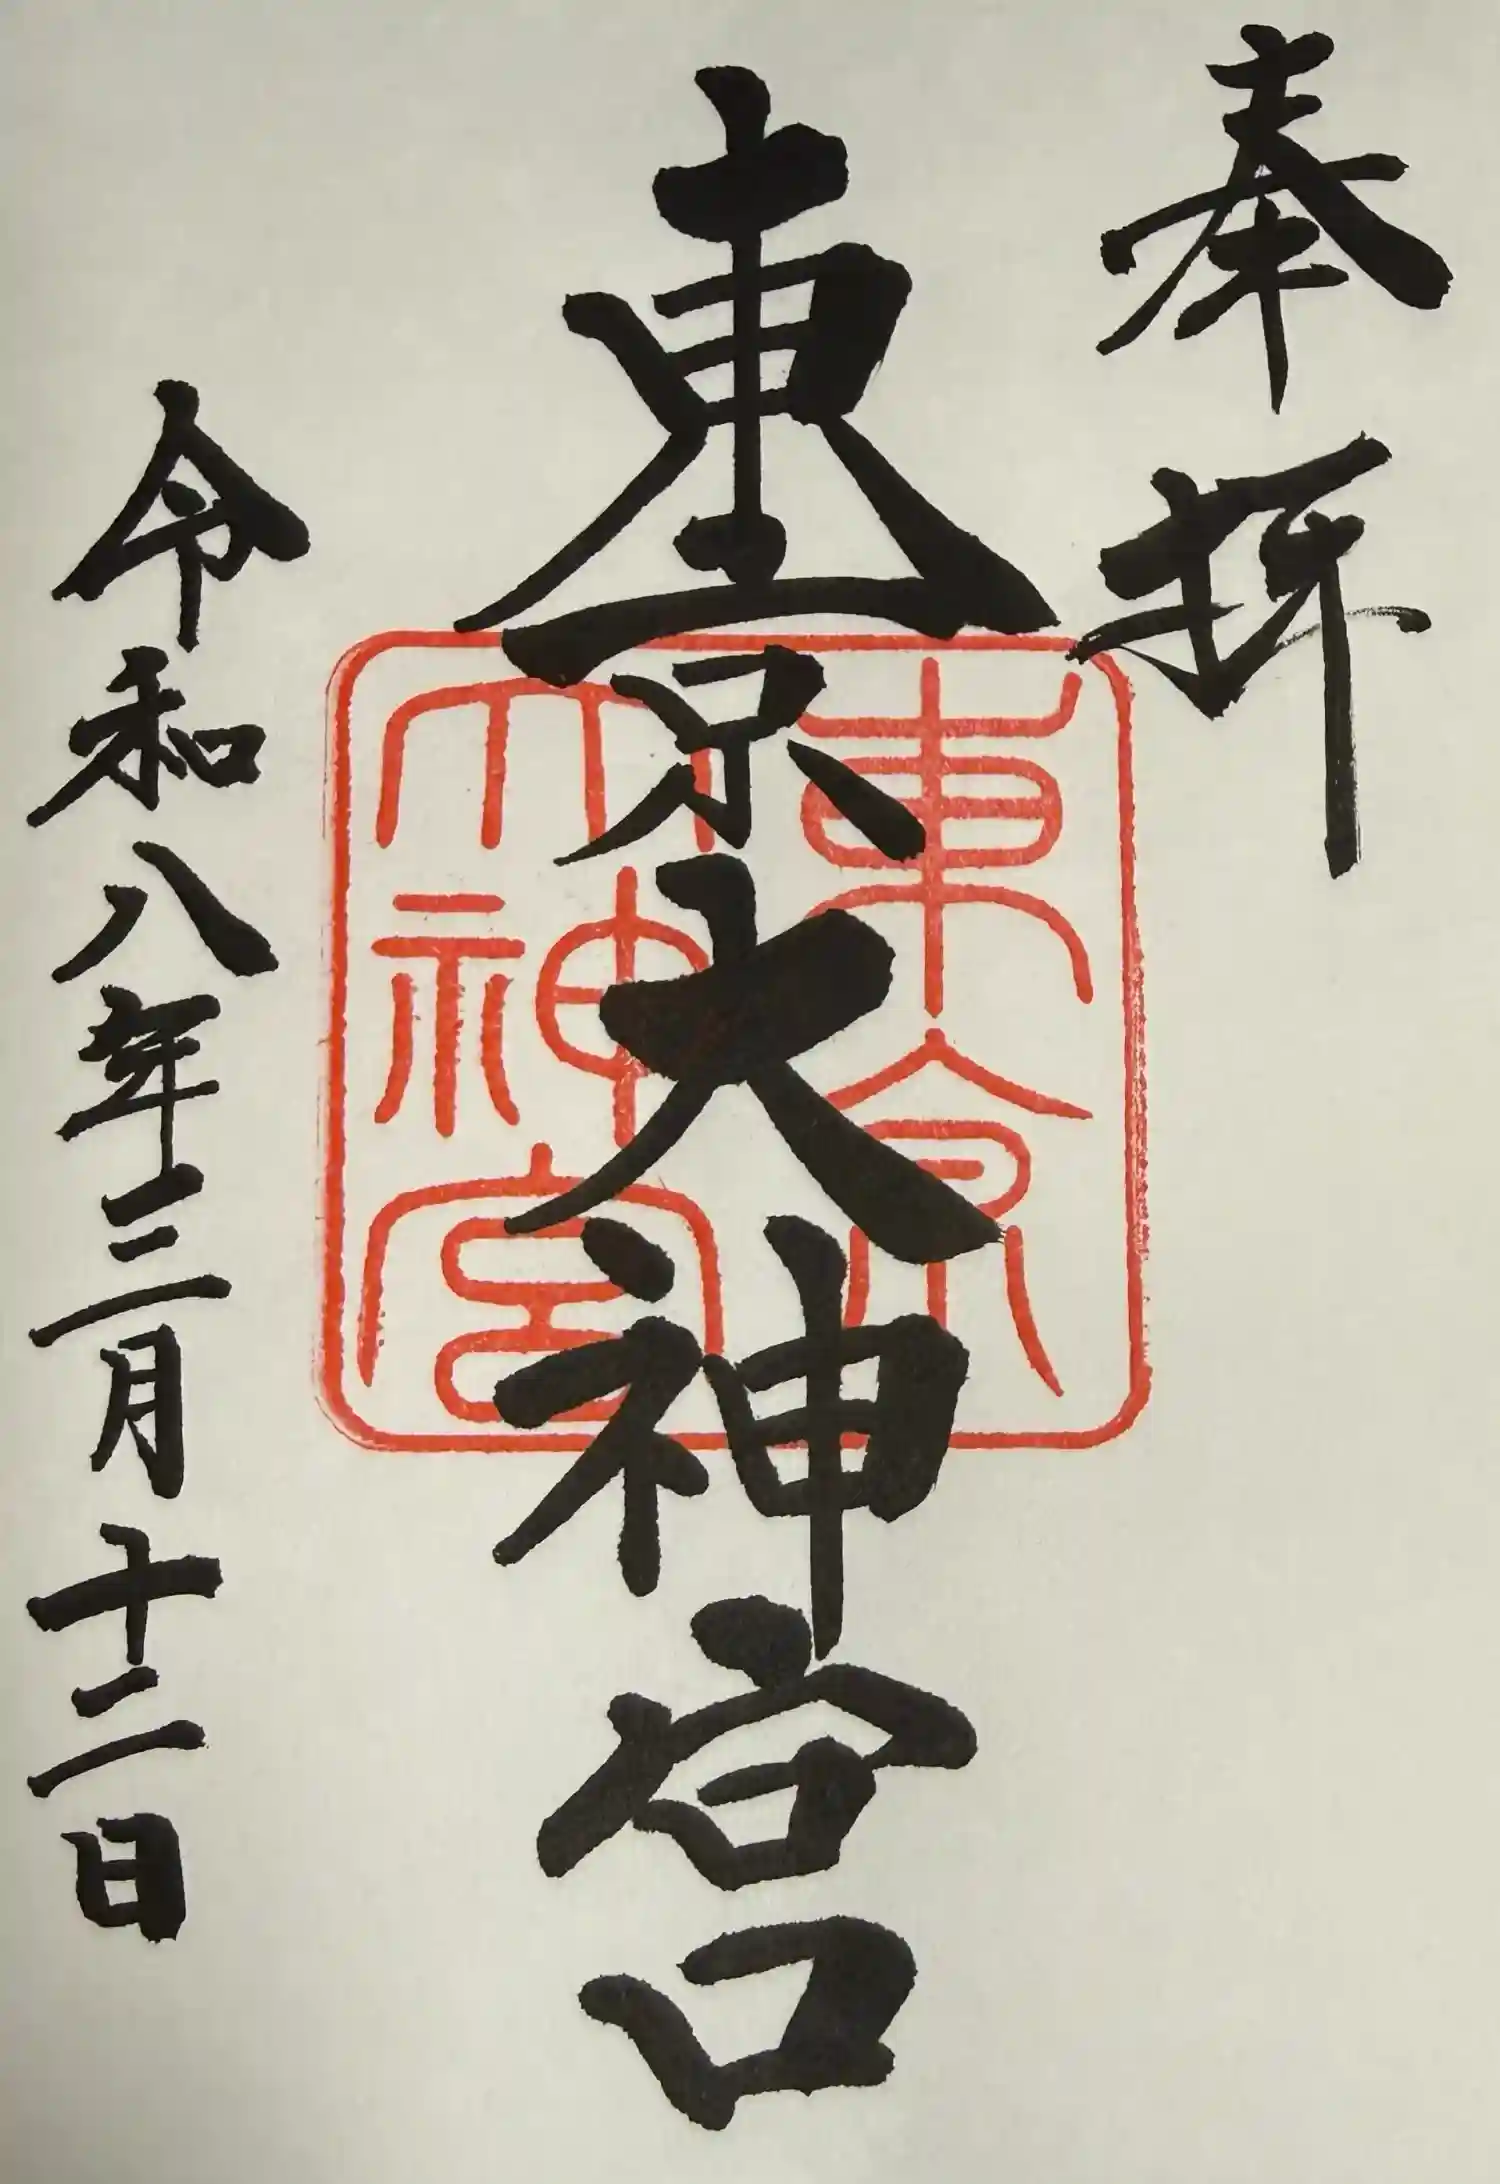 奉拝
東京大神宮
東京
大神宮
令和八年三月十二日